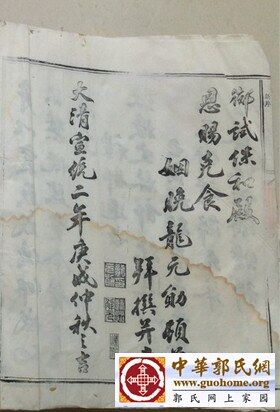 御试保和殿
恩赐克食
姻晚龙元勋顿首
拜撰并
大清宣统二年庚戌仲秋之吉
中華郭氏網
www.guohome.org
郭氏网上家园